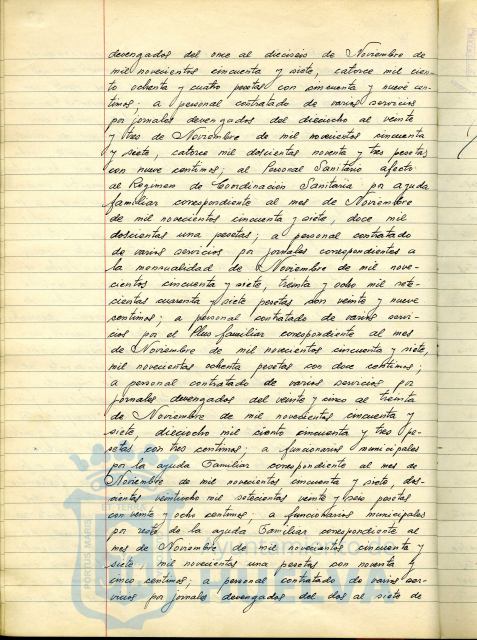 devengados del once al dieciseis de Noviembre de
mil novecientos cincuenta y siete, catorce mil cien-
to ochenta y cuatro pesetas con cincuenta y nueve cen-
timos; a personal contratado de varios servicios
por jornales devengados del dieciocho al veinte
y tres de Noviembre de mil novecientos cincuenta
y siete, catorce mil doscientas noventa y tres pesetas
con nueve centimos; al Personal Sanitario afecto
al Regimen de Coordinación Sanitaria por ayuda
familiar correspondiente al mes de Noviembre
de mil novecientos cincuenta y siete, doce mil
doscientas una pesetas; a personal contratado
de varios servicios por jornales correspondientes a
la mensualidad de Noviembre de mil nove-
cientos cincuenta y siete, treinta y ocho mil sete-
cientas cuarenta y siete pesetas con veinte y nueve
centimos; a personal contratado de varios servi-
cios por el Plus familiar correspondiente al mes
de Noviembre de mil novecientos cincuenta y siete,
mil novecientas ochenta pesetas con doce centimos;
a personal contratado de varios servicios por
jornales devengados del veinte y cinco al treinta
de Noviembre de mil novecientos cincuenta y
siete, dieciocho mil ciento cincuenta y tres pe-
setas con tres centimos; a funcionarios municipales
por la ayuda Familiar correspondiente al mes de
Noviembre de mil novecientos cincuenta y siete, dos-
cientas veintiocho mil setecientas veinte y seis pesetas
con veinte y ocho centimos; a funcionarios municipales
por resto de la ayuda Familiar correspondiente al
mes de Noviembre de mil novecientos cincuenta y
siete, mil novecientas una pesetas con noventa y
cinco centimos; a personal contratado de varios ser-
vicios por jornales devengados del dos al siete de
PORTUS MARIS
Ayuntamiento de
HUELVA